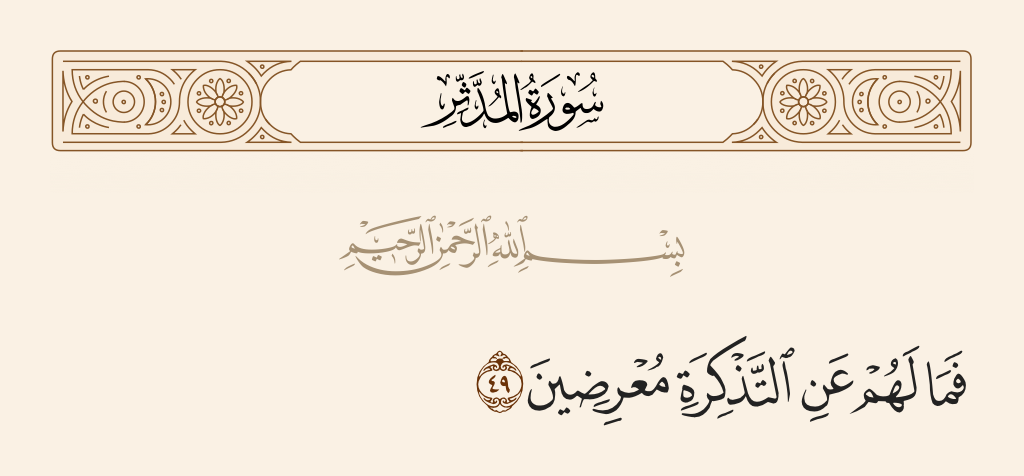 سُورَةُ المُدَّثِّرِ
بِسْمِ ٱللَّهِ ٱلرَّحْمَٰنِ ٱلرَّحِيمِ
فَمَا لَهُمْ عَنِ ٱلتَّذْكِرَةِ مُعْرِضِينَ ٤٩